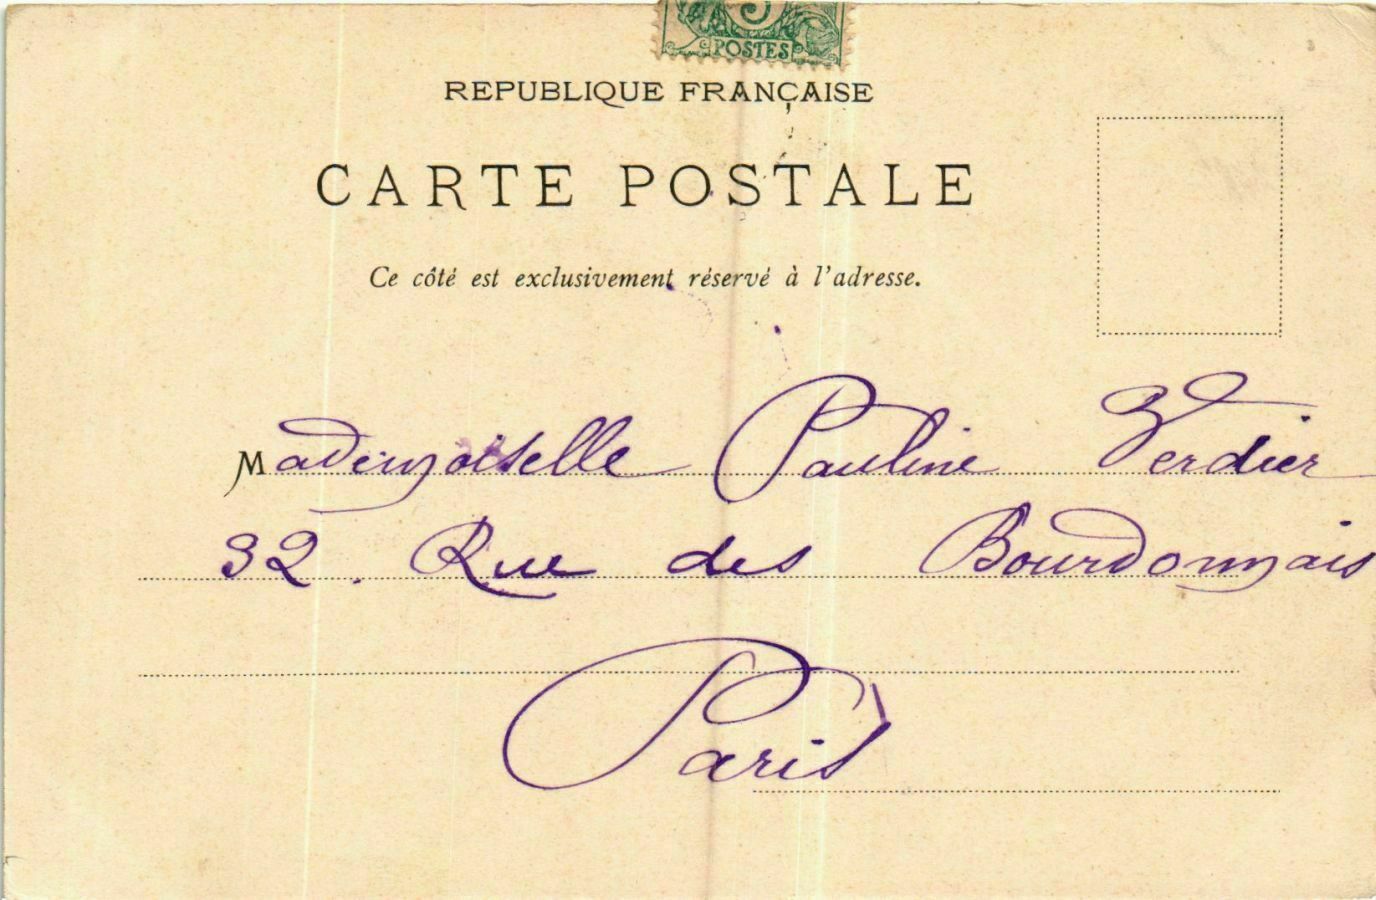 5
POSTES
REPUBLIQUE FRANÇAISE
CARTE POSTALE
Ce côté est exclusivement réservé à l'adresse.
Mademoiselle Pauline Verdier
32. Rue des Bourdonnais
Paris